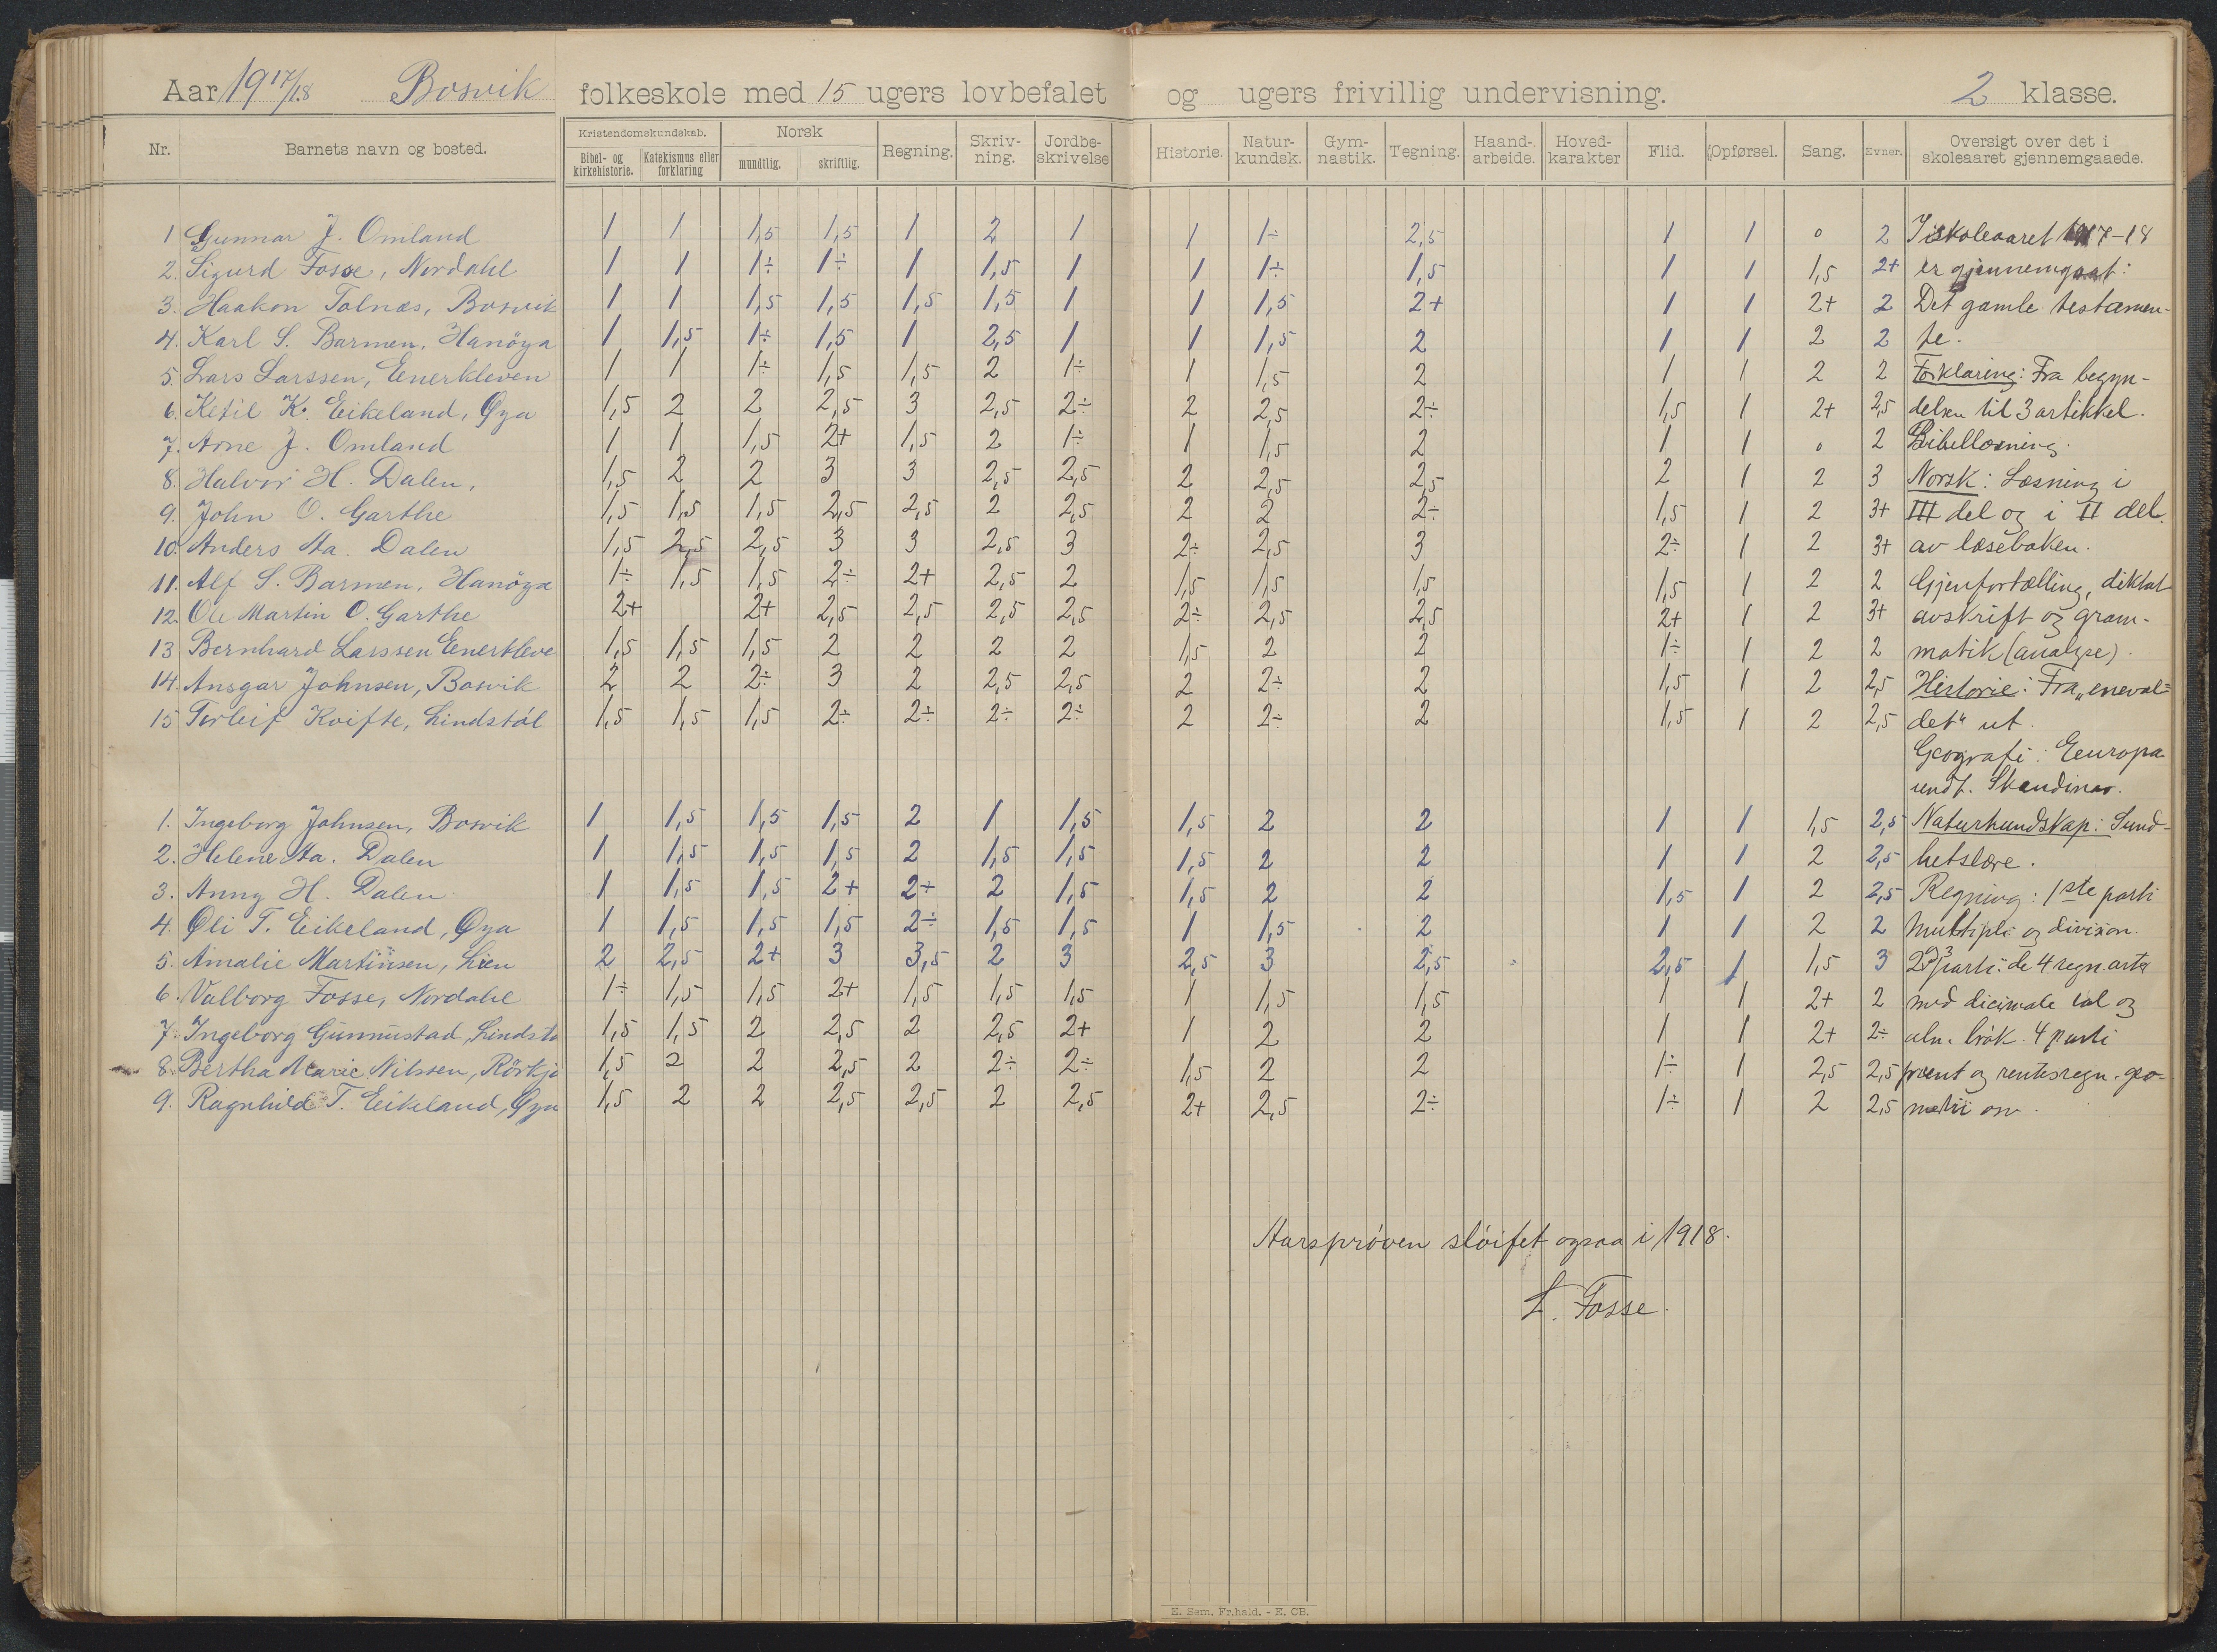 Aar 1917/18 Bosvik folkeskole med 15 ugers lovbefalet og ugers frivillig undervisning. 2 klasse.
Nr. Barnets navn og bosted. Kristendomskundskab. Bibel- og kirkehistorie. Katekismus eller forklaring Norsk mundtlig. skriftlig. Regning. Skriv-ning. Jordbe-skrivelse Historie. Natur-kundsk. Gym-nastik. Tegning. Haand-arbeide. Hoved-karakter Flid. Opførsel. Sang. Evner. Oversigt over det i skoleaaret gjennemgaaede.
1 Gunnar J. Omland 1 1 1,5 1,5 1 2 1 1 1÷ 2,5 1 1 0 2 I skoleaaret 1917-18
2. Sigurd Fosse, Nordahl 1 1 1÷ 1÷ 1 1,5 1 1 1÷ 1,5 1 1 1,5 2+ er gjennemgaat:
3. Haakon Tolnæs, Bosvik 1 1 1,5 1,5 1,5 1,5 1 1 1,5 2+ 1 1 2+ 2 Det gamle testamen-
4. Karl S. Barmen, Hanöya 1 1,5 1÷ 1,5 1 2,5 1 1 1,5 2 1 1 2 2 te.
5. Lars Larssen, Enerkleven 1 1 1÷ 1,5 1,5 2 1÷ 1 1,5 2 1 1 2 2 Forklaring: Fra begyn-
6. Ketil K. Eikeland, Øya 1,5 2 2 2,5 3 2,5 2÷ 2 2,5 2÷ 1,5 1 2+ 2,5 delsen til 3 artikkel.
7. Arne J. Omland 1 1 1,5 2+ 1,5 2 1÷ 1 1,5 2 1 1 0 2 Bibellæsning.
8. Halvor H. Dalen, 1,5 2 2 3 3 2,5 2,5 2 2,5 2,5 2 1 2 3 Norsk: Læsning i
9. John O. Garthe 1,5 1,5 1,5 2,5 2,5 2 2,5 2 2 2÷ 1,5 1 2 3+ III del og i II del.
10. Anders Aa. Dalen 1,5 2,5 2,5 3 3 2,5 3 2÷ 2,5 3 2÷ 1 2 3+ av læseboken.
11. Alf S. Barmen, Hanöya 1÷ 1,5 1,5 2÷ 2+ 2,5 2 1,5 1,5 1,5 1,5 1 2 2 Gjenfortælling, diktat
12. Ole Martin O. Garthe 2+ 2+ 2,5 2,5 2,5 2,5 2÷ 2,5 2,5 2+ 1 2 3+ avskrift og gram-
13 Bernhard Larssen Enerkleve 1,5 1,5 1,5 2 2 2 2 1,5 2 2 1÷ 1 2 2 matik (analyse).
14. Ansgar Johnsen, Bosvik 2 2 2÷ 3 2 2,5 2,5 2 2÷ 2 1,5 1 2 2,5 Historie: Fra „eneval=
15 Torleif Kvifte, Lindstöl 1,5 1,5 1,5 2÷ 2÷ 2÷ 2÷ 2 2÷ 2 1,5 1 2 2,5 det" ut.
Geografi: Eeuropa
undt. Skandinav.
1. Ingeborg Johnsen, Bosvik 1 1,5 1,5 1,5 2 1 1,5 1,5 2 2 1 1 1,5 2,5 Naturkundskap: Sund-
2. Helene Aa. Dalen 1 1,5 1,5 1,5 2 1,5 1,5 1,5 2 2 1 1 2 2,5 hetslære.
3. Anny H. Dalen 1 1,5 1,5 2+ 2+ 2 1,5 1,5 2 2 1,5 1 2 2,5 Regning: 1ste parti
4. Øli T. Eikeland, Øya 1 1,5 1,5 1,5 2÷ 1,5 1,5 1 1,5 2 1 1 2 2 Multipli og division.
5. Amalie Martinsen, Lien 2 2,5 2+ 3 3,5 2 3 2,5 3 2,5 2,5 1 1,5 3 2 og 3 parti: de 4 regn. arter
6. Valborg Fosse, Nordahl 1÷ 1,5 1,5 2+ 1,5 1,5 1,5 1 1,5 1,5 1 1 2+ 2 med dicimale tal og
7. Ingeborg Gunnustad, Lindstö 1,5 1,5 2 2,5 2 2,5 2+ 1 2 2 1 1 2+ 2÷ alm. brök. 4 parti
8. Bertha Marie Nilssen, Rörkje 1,5 2 2 2,5 2 2÷ 2÷ 1,5 2 2 1÷ 1 2,5 2,5 procent og rentesregn. geo-
9. Ragnhild T. Eikeland, Øya 1,5 2 2 2,5 2,5 2 2,5 2+ 2,5 2÷ 1÷ 1 2 2,5 metri osv.
Aarsprøven slöifet ogsaa i 1918.
L. Fosse.
E. Sem, Fr.hald. - E. CB.